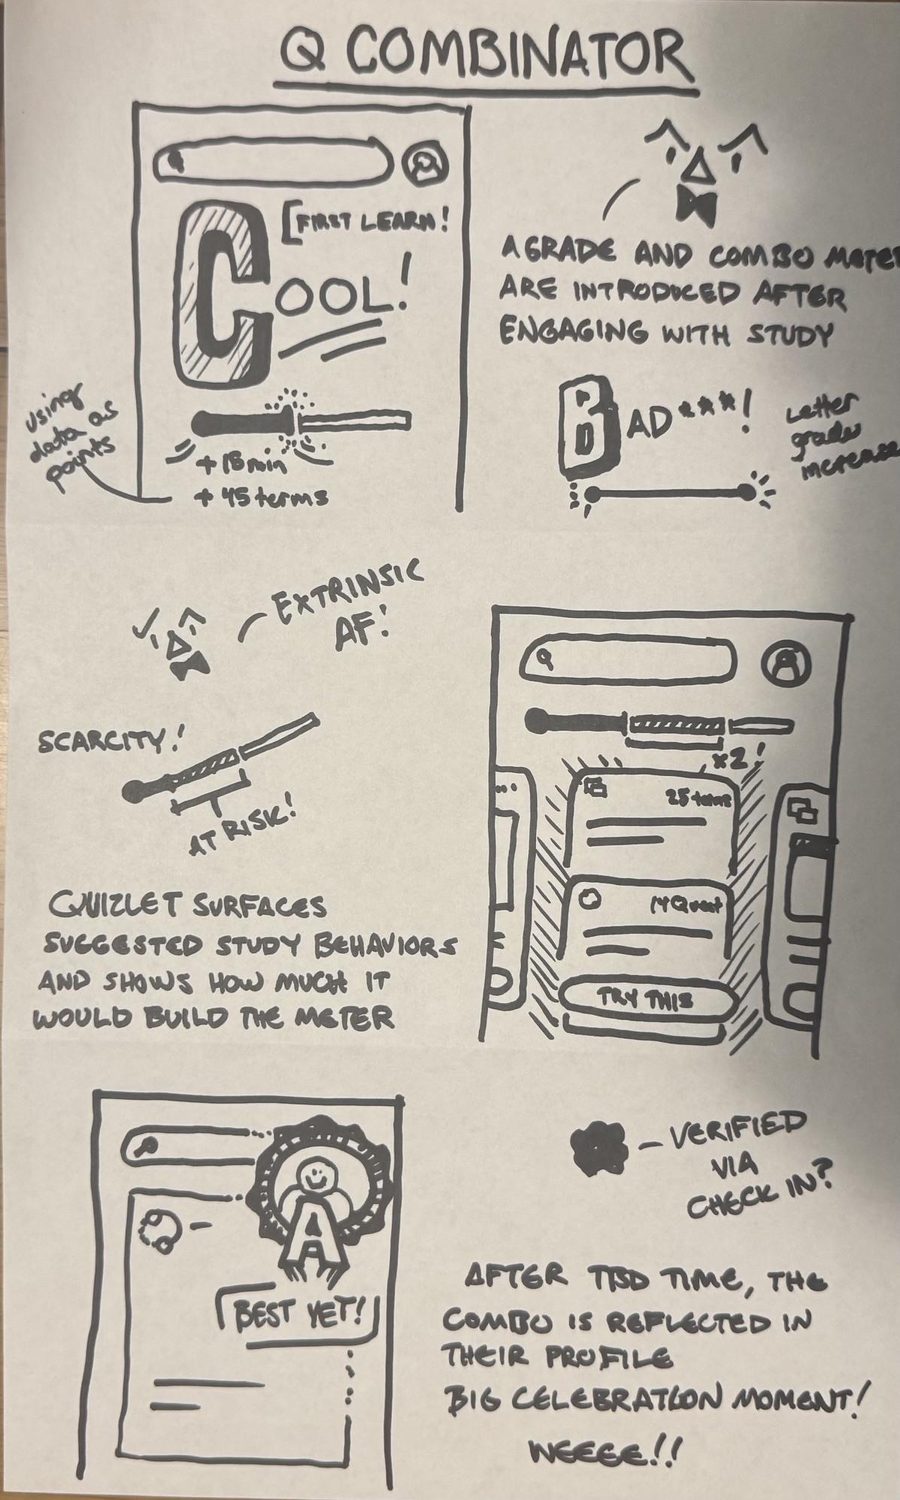 Q COMBINATOR
[FIRST LEARN!
COOL!
A GRADE AND COMBO METER
ARE INTRODUCED AFTER
ENGAGING WITH STUDY
using
data as
points
+ 18min
+ 45 terms
BAD***!
Letter
grade
increase
EXTRINSIC
AF!
SCARCITY!
AT RISK!
x2!
25 terms
TRY THIS
QUIZLET SURFACES
SUGGESTED STUDY BEHAVIORS
AND SHOWS HOW MUCH IT
WOULD BUILD THE METER
A
BEST YET!
VERIFIED
VIA
CHECK IN?
AFTER TBD TIME, THE
COMBO IS REFLECTED IN
THEIR PROFILE
BIG CELEBRATION MOMENT!
WEEEE!!